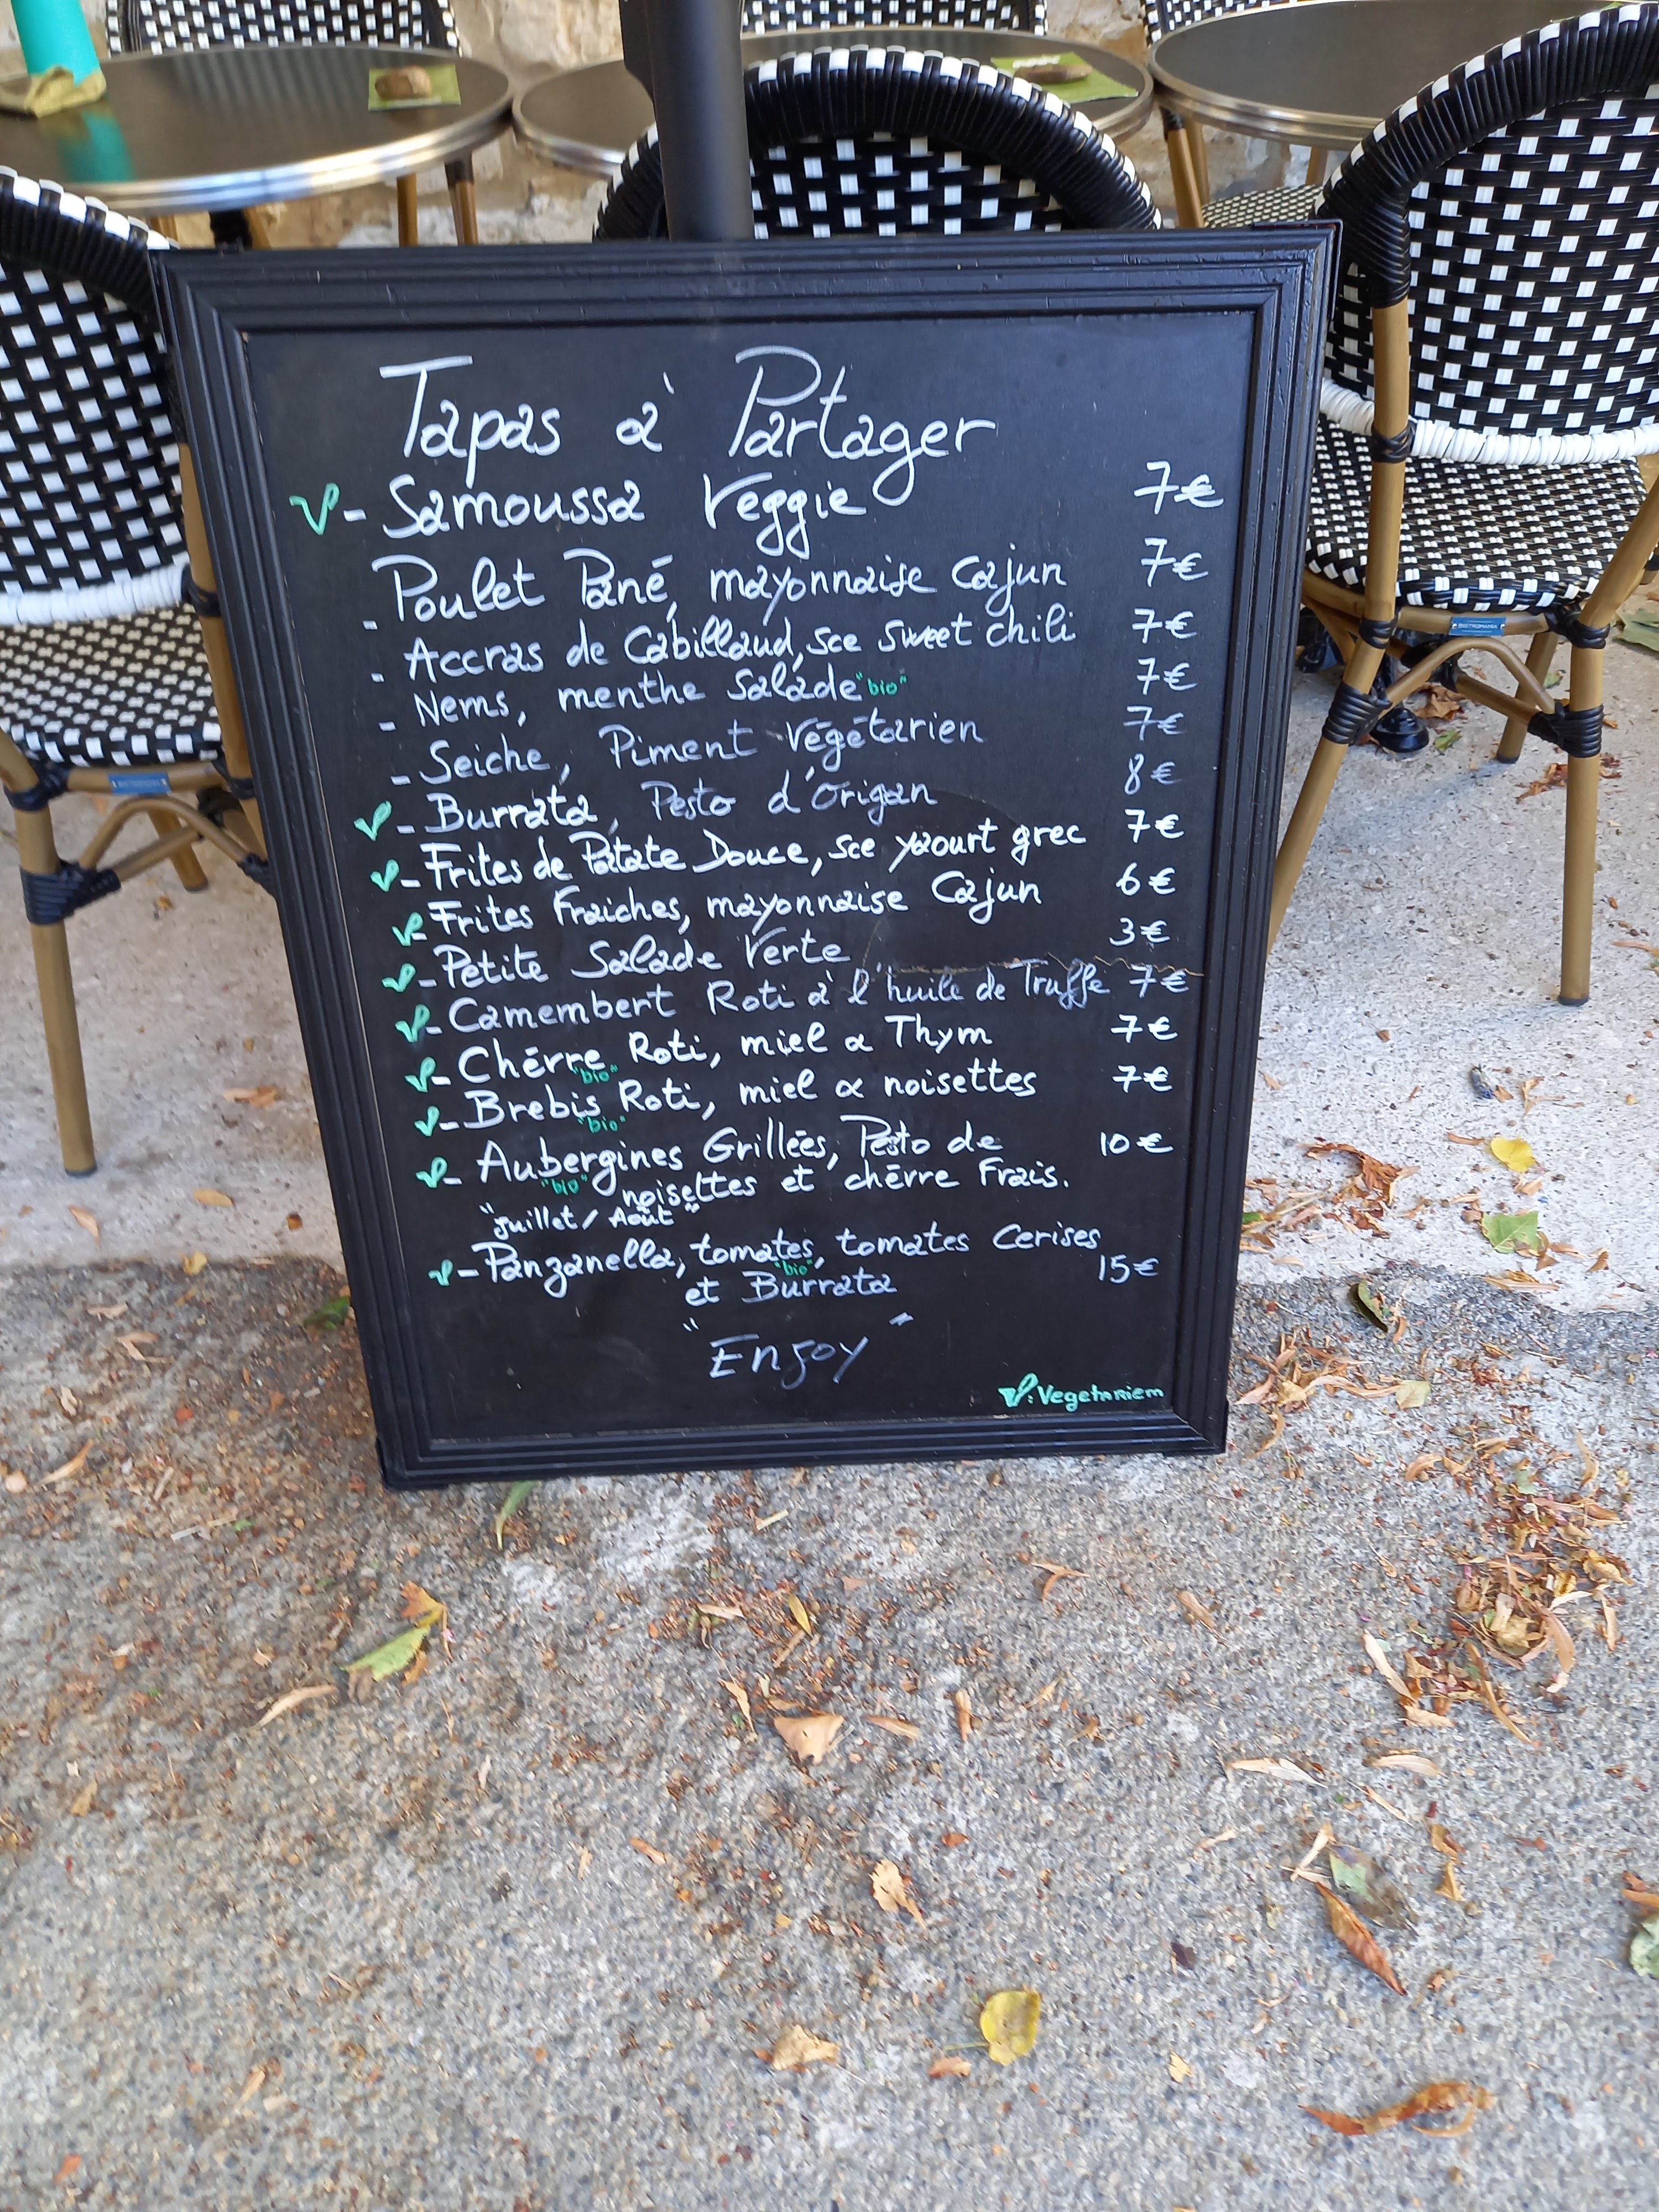 Tapas à Partager
V - Samoussa Veggie 7€
- Poulet Pané, mayonnaise Cajun 7€
- Accras de Cabillaud, sce sweet chili 7€
- Nems, menthe Salade "bio" 7€
- Seiche, Piment Végétarien 7€
V - Burrata, Pesto d'Origan 8€
V - Frites de Patate Douce, sce yaourt grec 7€
V - Frites Fraiches, mayonnaise Cajun 6€
V - Petite Salade Verte 3€
V - Camembert Roti à l'huile de Truffe 7€
V - Chévre Roti, miel & Thym 7€
"bio"
V - Brebis Roti, miel & noisettes 7€
"bio"
V - Aubergines Grillées, Pesto de 10€
"bio" noisettes et chévre Frais.
"Juillet/Août"
V - Panzanella, tomates, tomates Cerises
"bio"
et Burrata 15€
"Enjoy"
V : Vegetariem